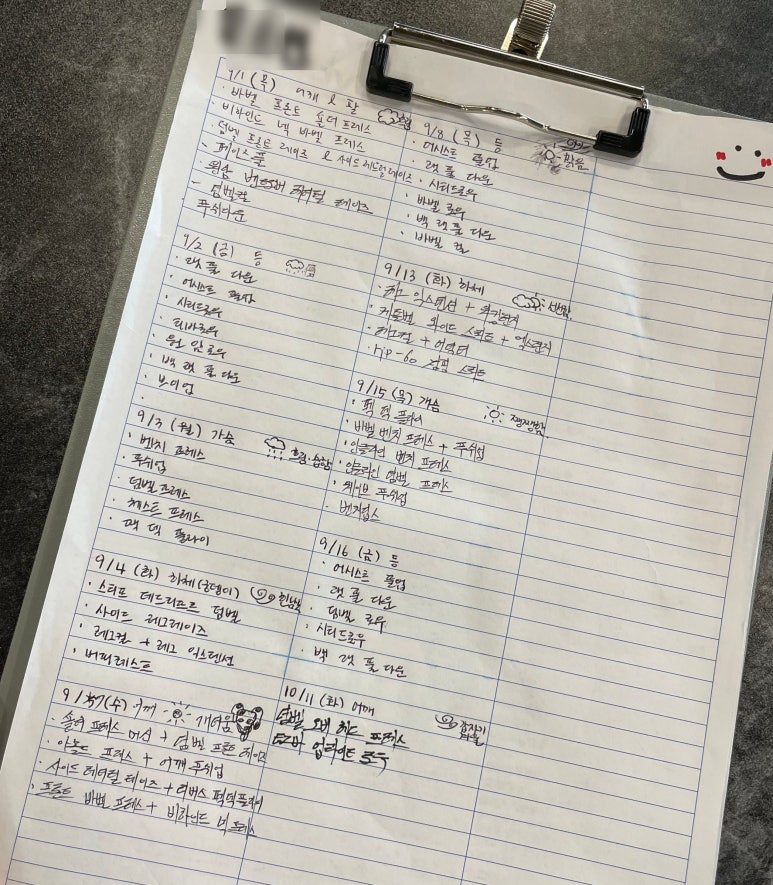 9/1 (목) 어깨 & 팔
· 바벨 프론트 숄더 프레스 흐림
비하인드 넥 바벨 프레스
· 덤벨 프론트 레이즈 & 사이드 레터럴 레이즈
- 페이스 풀
원암 레터럴 레이즈
- 덤벨컬
푸쉬다운
9/2 (금) 등
· 랫 풀 다운
· 어시스트 풀업
· 시티드로우
· 티바로우
· 원 암 로우
· 백 랫 풀 다운
9/3 (월) 가슴 흐림·습함
· 벤치 프레스
· 푸쉬업
· 덤벨프레스
· 체스트 프레스
· 펙 덱 플라이
9/4 (화) 하체(궁뎅이) 힌남노
· 스티프 데드리프트 덤벨
· 사이드 레그레이즈
· 레그컬 + 레그 익스텐션
· 버피테스트
9/7(수) 어깨 개더움
· 숄더 프레스 머신 + 덤벨 프론트 레이즈
· 아놀드 프레스 + 어깨 푸쉬업
· 사이드 레터럴 레이즈 + 리버스 펙덱플라이
· 프론트 바벨 프레스 + 비하인드 넥 프레스
9/8 (목) 등 맑음
· 어시스트 풀업
· 랫 풀 다운
· 시티드로우
· 바벨 로우
· 백 랫 풀 다운
· 바벨 컬
9/13 (화) 하체 선선함
· 레그 익스텐션 + 와킹런지
· 케틀벨 와이드 스쿼트 + 익스런지
· 레그컬 + 이너타
· hip-60 점핑 스쿼트
9/15 (목) 개슴 쨍쨍함
· 펙 덱 플라이
· 바벨 벤치 프레스 + 푸쉬업
· 인클라인 벤치 프레스
· 인클라인 덤벨 프레스
· 웨이브 푸쉬업
· 벤치딥스
9/16 (금) 등
· 어시스트 풀업
· 랫 풀 다운
· 덤벨 로우
· 시티드로우
· 백 랫 풀 다운
10/11 (화) 어깨 갑자기
덤벨 오버 헤드 프레스
EZ바 업라이트 로우